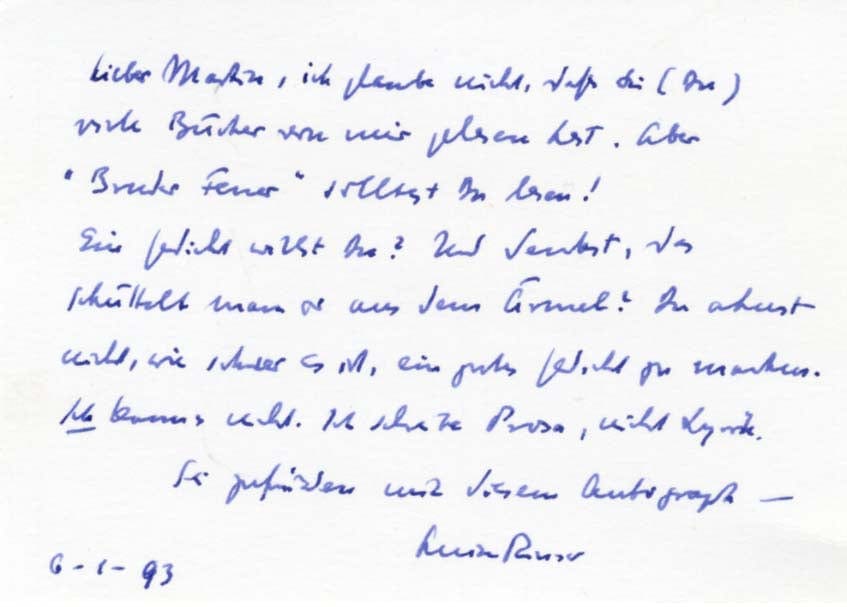 Lieber Martin, ich glaube nicht, daß Sie (Du)
viele Bücher von mir gelesen hast. Aber
"Bruder Feuer" solltest Du lesen!
Ein Gedicht willst Du? Und denkst, das
schüttelt man so aus dem Ärmel? Du ahnst
nicht, wie schwer es ist, ein gutes Gedicht zu machen.
Ich kann's nicht. Ich schreibe Prosa, nicht Lyrik.
Sei zufrieden mit diesem Autograph —
Luise Rinser
6-1-93